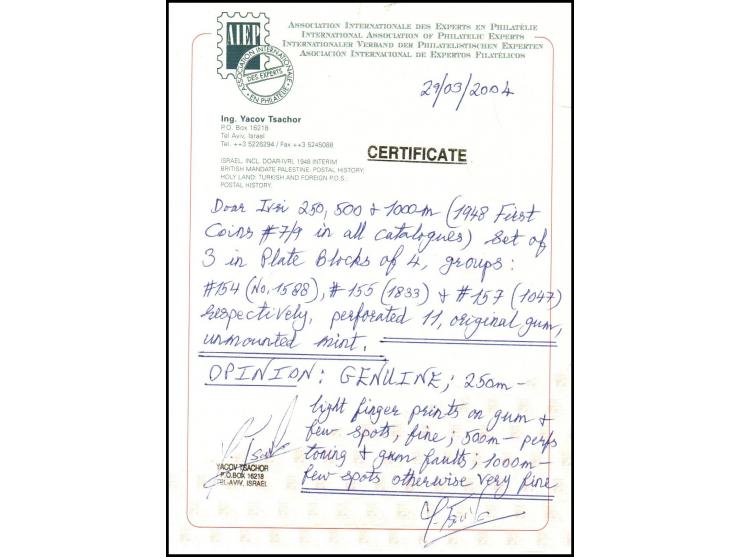 ASSOCIATION INTERNATIONALE DES EXPERTS EN PHILATÉLIE
INTERNATIONAL ASSOCIATION OF PHILATELIC EXPERTS
INTERNATIONALER VERBAND DER PHILATELISTISCHEN EXPERTEN
ASOCIACIÓN INTERNACIONAL DE EXPERTOS FILATÉLICOS
AIEP
ASSOCIATION INTERNATIONALE
DES EXPERTS
EN PHILATELIE
29/03/2004
Ing. Yacov Tsachor
P.O. Box 16218
Tel Aviv, Israel
Tel. ++3 5226294 / Fax ++3 5245088
CERTIFICATE
ISRAEL, INCL. DOAR-IVRI, 1948 INTERIM
BRITISH MANDATE PALESTINE: POSTAL HISTORY;
HOLY LAND: TURKISH AND FOREIGN P.O.S.:
POSTAL HISTORY.
Doar Ivri 250, 500 & 1000m (1948 First
Coins #7/9 in all catalogues) Set of
3 in Plate Blocks of 4, groups:
#154 (No. 1588), #155 (1833) & #157 (1047)
respectively, perforated 11, original gum,
unmounted mint.
OPINION: GENUINE; 250m -
light finger prints on gum &
few spots, fine; 500m - perfs
toning & gum faults; 1000m -
few spots otherwise very fine
YACOV TSACHOR
P.O.BOX 16218
TEL-AVIV, ISRAEL